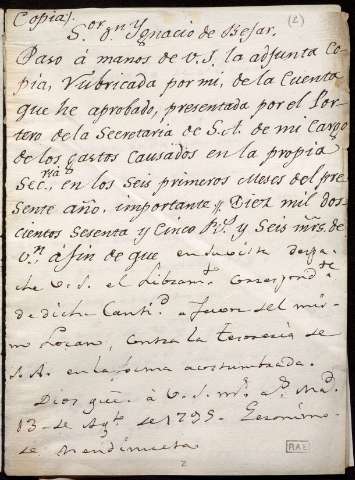 Copia/.
(2)
S.or D.n Ygnacio de Bejar.
Paso á manos de V.S. la adjunta Co-
pia, rubricada por mi, de la Cuenta
que he aprobado, presentada por el Por-
tero de la Secretaria de S.A. de mi Cargo
de los gastos causados en la propia
Sec.ria, en los seis primeros Meses del pre-
sente año, importante Diez mil dos
cientos sesenta y cinco R.s y seis mrs. de
v.n á fin de que en su vista despa-
che V.S. el Libram.to correspond.te
de dicha Cantid.d a favor del mis-
mo contra la Tesoreria de
S.A. en la forma acostumbrada.
Dios gue. á V.S. m.s a.s Mad.d
13 de Ag.to de 1795. Geronimo
de Mendinueta.
RAE
2